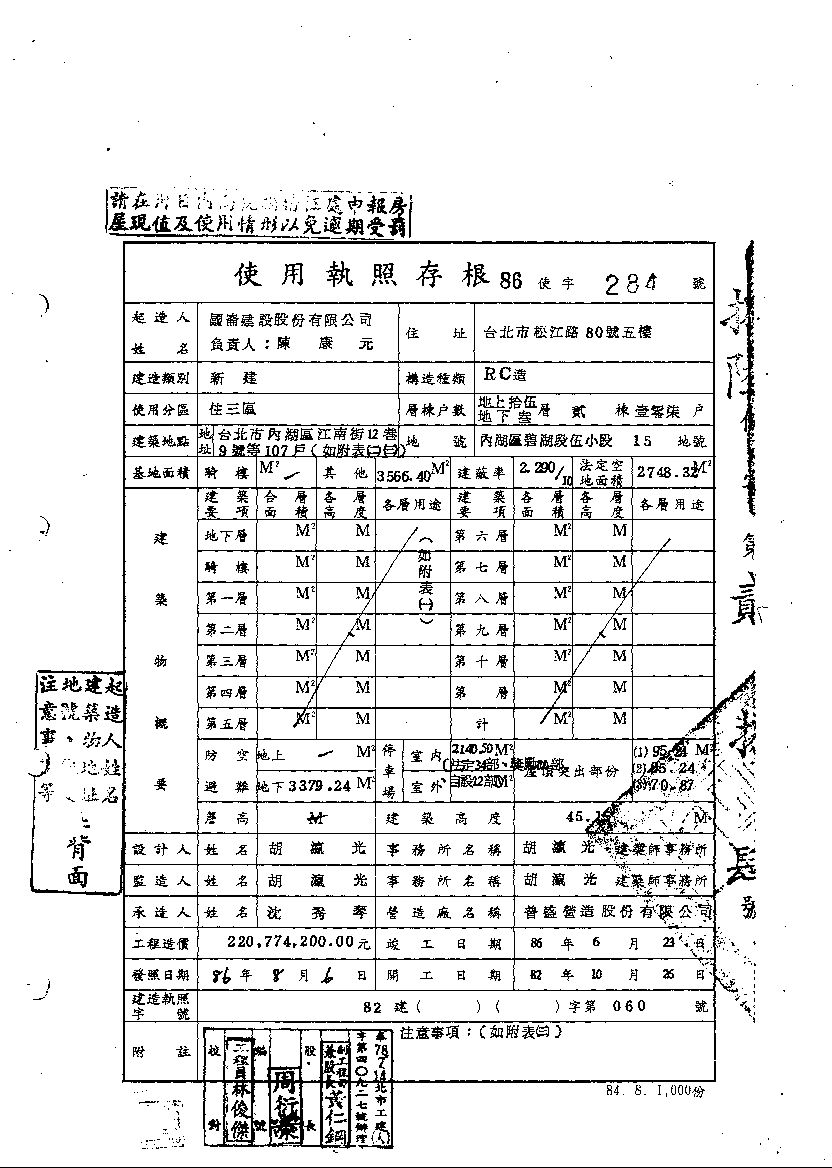 屋現值及使用情形以免逾期受罰
使用執照存根 86 使字 284 號
起造人姓名 國崙建設股份有限公司 負責人：陳康元 住址 台北市松江路80號五樓
建造類別 新建 構造種類 RC造
使用分區 住三區 層棟戶數 地上拾伍 地下叁 層 貳 棟 壹零柒 戶
建築地點 地址 台北市內湖區江南街12巷9號等107戶(如附表㈡㈢) 地號 內湖區碧湖段伍小段 15 地號
基地面積 騎樓 M² 其他 3566.40M² 建蔽率 2.290/10 法定空地面積 2748.32M²
建築物概要
建築要項 合層面積 各層高度 各層用途 建築要項 各層面積 各層高度 各層用途
地下層 M² M (如附表㈠) 第六層 M² M
騎樓 M² M 第七層 M² M
第一層 M² M 第八層 M² M
第二層 M² M 第九層 M² M
第三層 M² M 第十層 M² M
第四層 M² M 第 層 M² M
第五層 M² M 計 M² M
防空避難 地上 M² 停車場 室內 2140.59M² (1)95.24 M²
地下 3379.24 M² 室外 自設12部 突出部份 (2)95.24
(3)70.87
簷高 M 建築高度 45. M
設計人 姓名 胡瀛光 事務所名稱 胡瀛光 建築師事務所
監造人 姓名 胡瀛光 事務所名稱 胡瀛光 建築師事務所
承造人 姓名 沈秀琴 營造廠名稱 普盛營造股份有限公司
工程造價 220,774,200.00元 竣工日期 86年6月23日
發照日期 86年8月6日 開工日期 82年10月26日
建造執照字號 82 建( )( )字第 060 號
附註 注意事項：(如附表㈢)
校對 工程員林俊傑
號 周衍
股長 副工程司兼股長黃仁鋼
84. 8. 1,000份
起造人姓名
建築物地址
地號
注意事
等
背面
第
貳
號